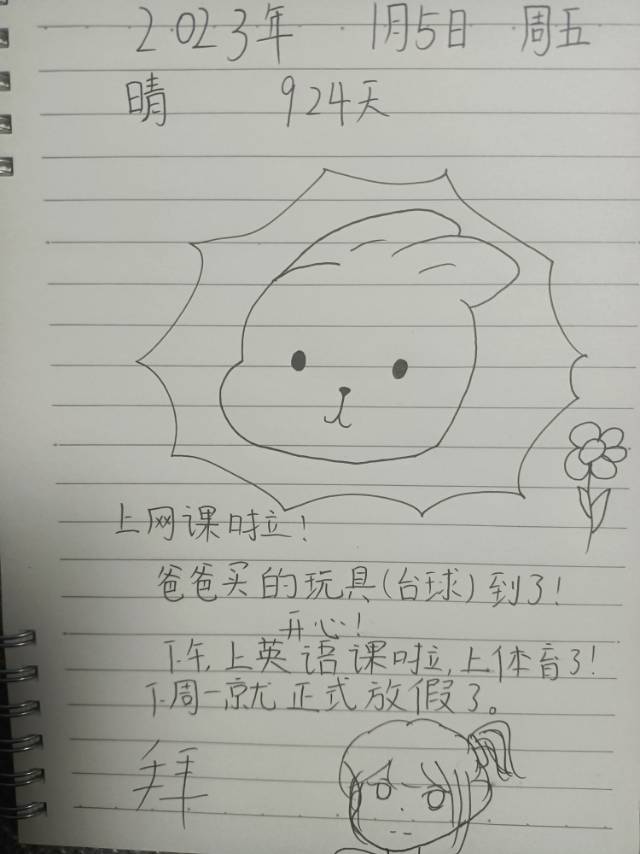 2023年 1月5日 周五
晴 924天
上网课啦!
爸爸买的玩具(台球)到了!
开心!
下午,上英语课啦,上体育了!
下周一就正式放假了。
拜